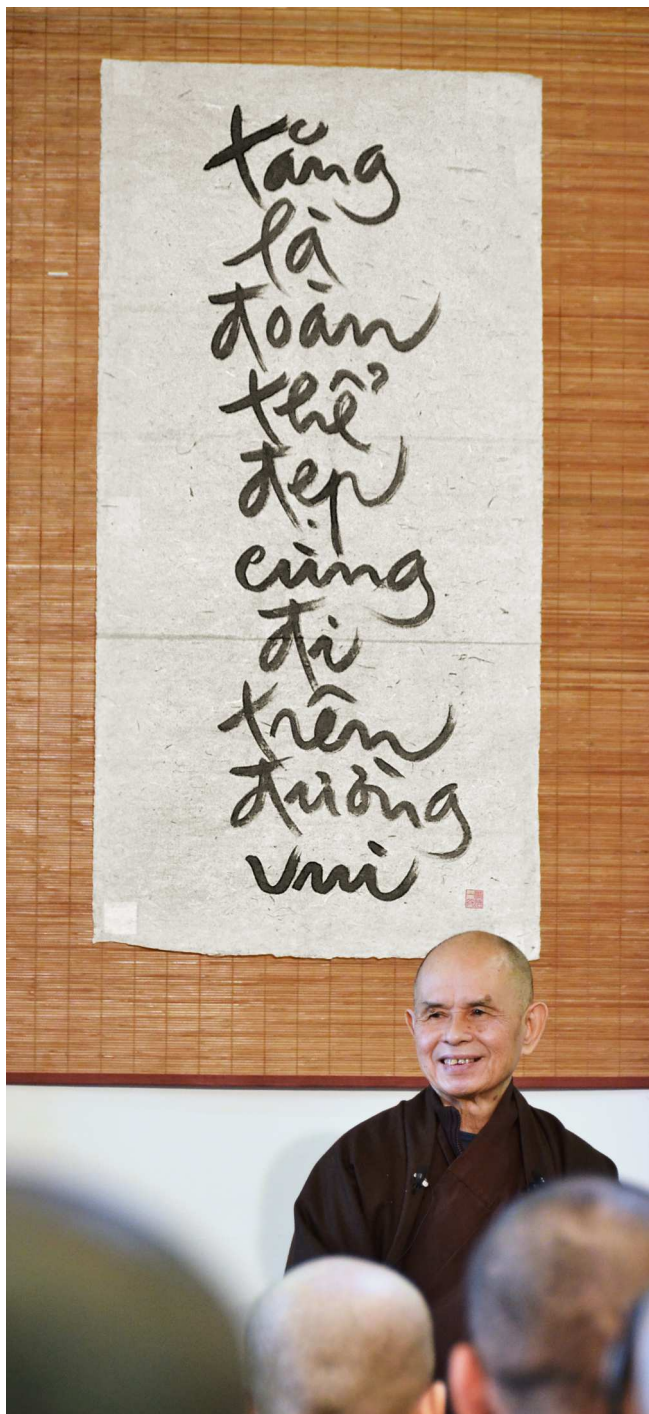 tăng
là
đoàn
thể
đẹp
cùng
đi
trên
đường
vui